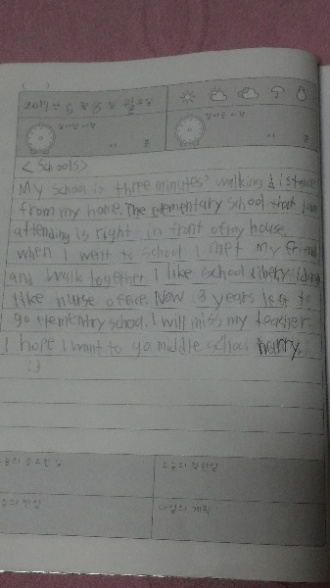 2017년 월 일 요일
일어난 시각
잠자는 시각
시 분
시 분
<Schools>
My school is three minutes' walking distance
from my home. The elementary school that I am
attending is right in front of my house.
when I went to school I met my friend
and walk together. I like school
like nurse office. Now 3 years left to
go elementry school. I will miss my teacher.
I hope I want to go middle school hurry.
:)
오늘의 중요한 일
오늘의 착한일
오늘의 반성
내일의 계획